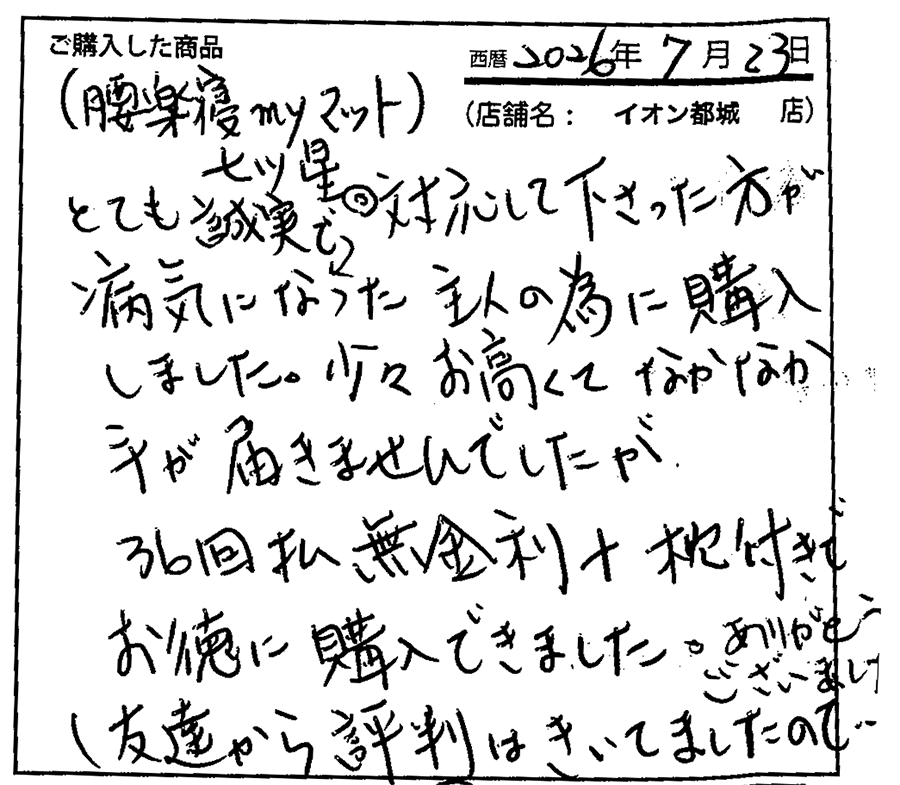 ご購入した商品
西暦 2026年 7月 23日
(腰楽寝myマット)
(店舗名: イオン都城 店)
七ツ星
とても誠実で◎対応して下さった方が
病気になった主人の為に購入
しました。少々お高くてなかなか
手が届きませんでしたが
36回払無金利+枕付きで
お徳に購入できました。ありがとう
ございました
(友達から評判はきいてましたので…